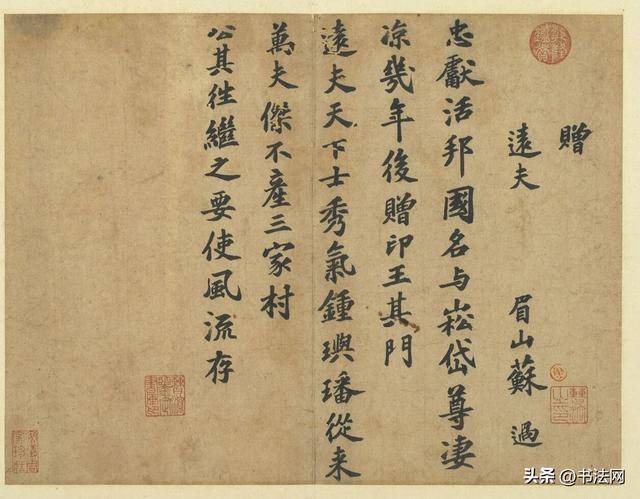 贈
遠夫
眉山蘇過
忠獻活邦國名与崧岱尊淒
凉幾年後贈印王其門
遠夫天下士秀氣鍾璵璠從来
萬夫傑不產三家村
公其徃繼之要使風流存
头条 @书法网